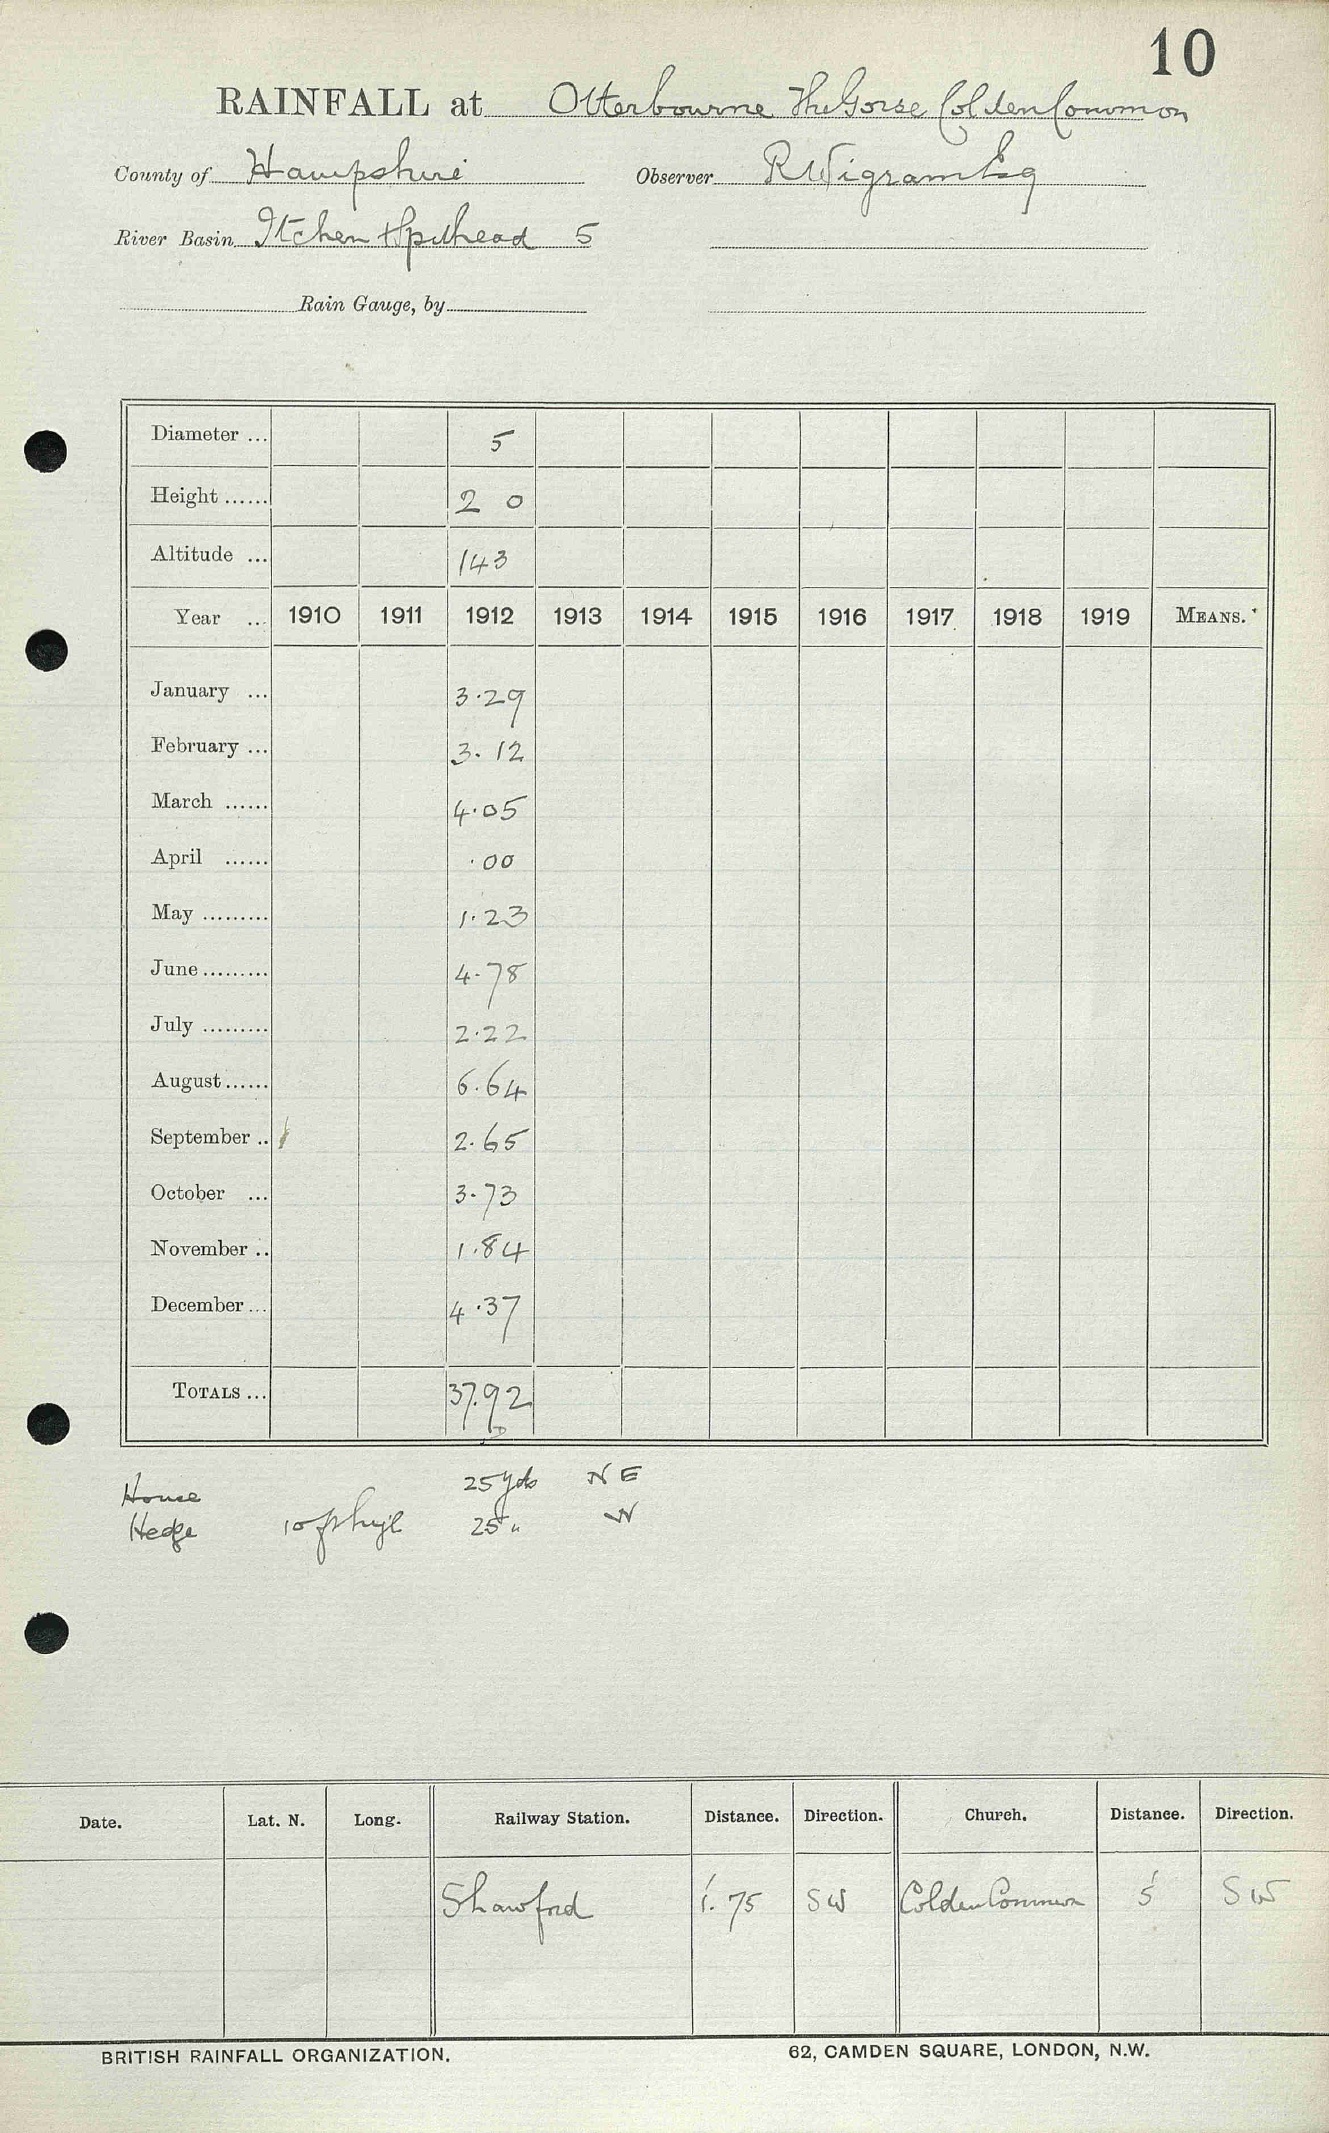 10
RAINFALL at Otterbourne The Gorse Colden Common
County of Hampshire Observer R Wigram Esq
River Basin Itchen & Spithead 5
Rain Gauge, by
Diameter ... 5
Height ...... 2 0
Altitude ... 143
Year ... 1910 1911 1912 1913 1914 1915 1916 1917 1918 1919 MEANS.
January ... 3.29
February ... 3.12
March ...... 4.05
April ...... .00
May ......... 1.23
June ......... 4.78
July ......... 2.22
August ...... 6.64
September .. 2.65
October ... 3.73
November .. 1.84
December ... 4.37
TOTALS ... 37.92
House 25 yds NE
Hedge 10 ft high 25 " W
Date. Lat. N. Long. Railway Station. Distance. Direction. Church. Distance. Direction.
Shawford 1.75 SW Colden Common 5 SW
BRITISH RAINFALL ORGANIZATION. 62, CAMDEN SQUARE, LONDON, N.W.